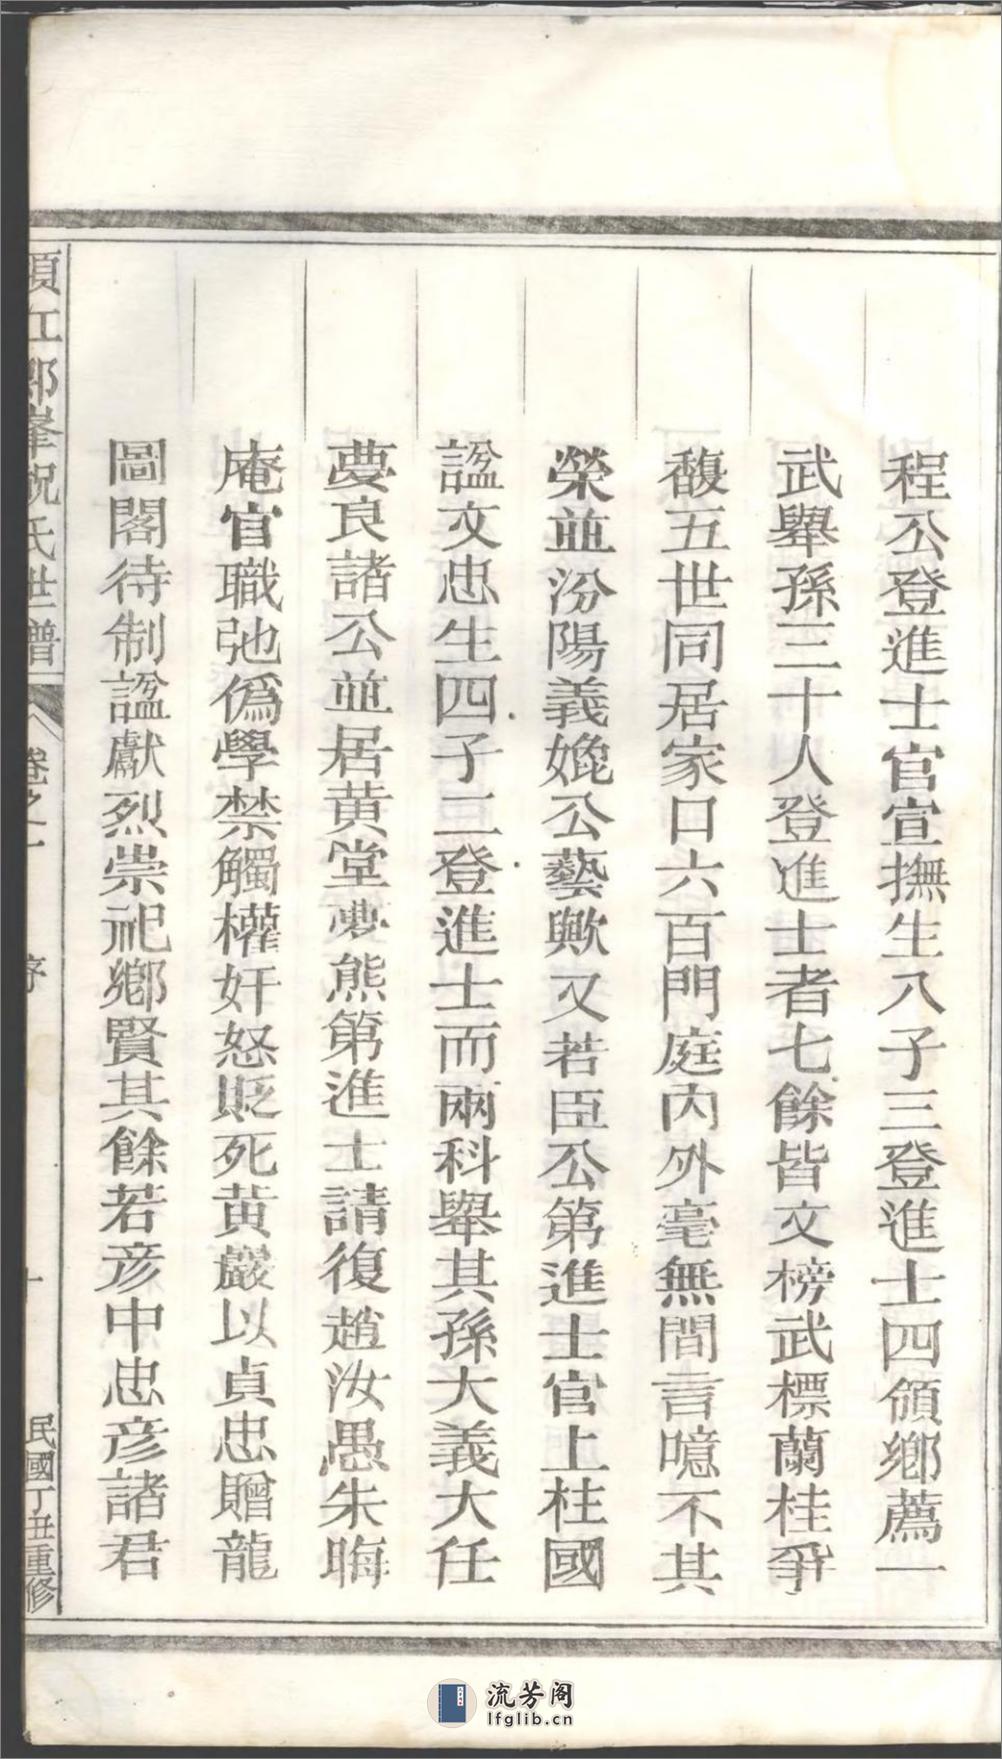 程公登進士官宣撫生八子三登進士四領鄉薦一
武舉孫三十人登進士者七餘皆文榜武標蘭桂爭
馥五世同居家口六百門庭內外毫無間言噫不其
榮並汾陽義媲公藝歟又若臣公第進士官上柱國
諡文忠生四子二登進士而兩科舉其孫大義大任
夢良諸公並居黄堂夢熊第進士請復趙汝愚朱晦
庵官職弛偽學禁觸權奸怒貶死黄巖以貞忠贈龍
圖閣待制諡獻烈崇祀鄉賢其餘若彦中忠彦諸君
須江郎峯祝氏世譜
卷之一
序
民國丁丑重修
流芳阁
lfglib.cn